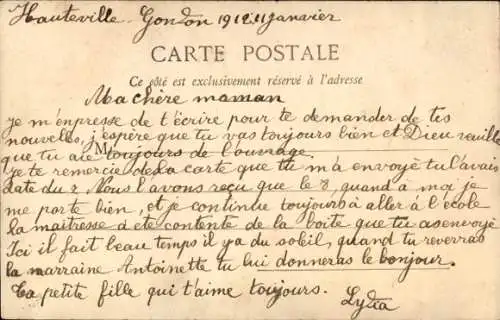 Hauteville. Gondon 1912 11 janvier
CARTE POSTALE
Ce côté est exclusivement réservé à l'adresse
Ma chère maman
Je m'enpresse de t'écrire pour te demander de tes
nouvelles, j'espère que tu vas toujours bien et Dieu veuille
que tu aie toujours de l'ouvrage.
M
Je te remercie de la carte que tu m'a envoyé tu l'avais
daté du 2 Nous l'avons reçu que le 8, quand à moi je
me porte bien, et je continue toujours à aller à l'école
la maitresse à été contente de la boite que tu as envoyé
Ici il fait beau temps il y a du soleil, quand tu reverras
la marraine Antoinette tu lui donneras le bonjour.
Ta petite fille qui t'aime toujours.
Lydia